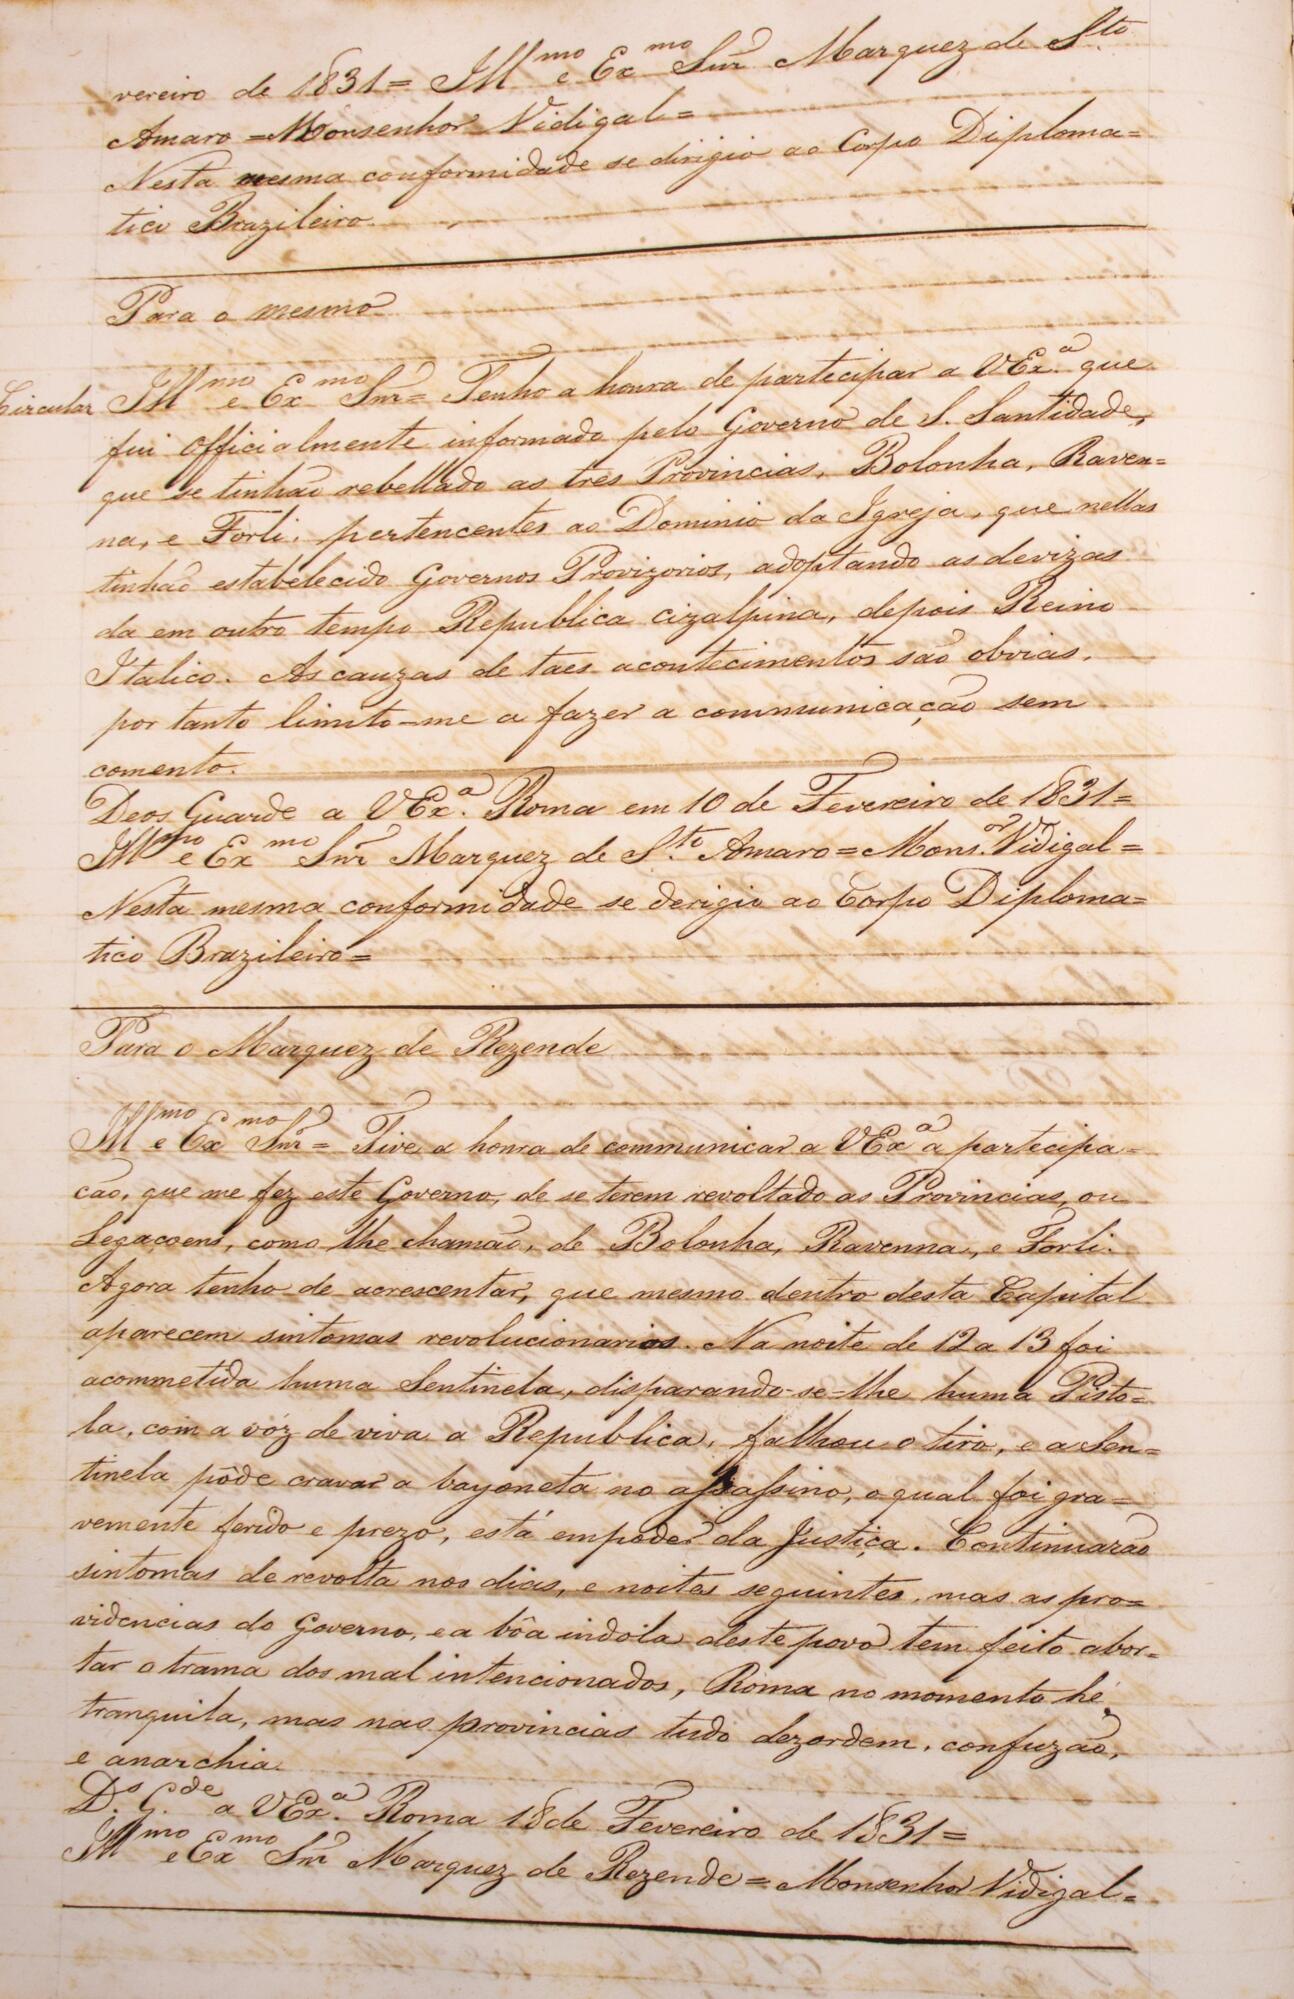 vereiro de 1831= Ill^mo e Ex^mo Snr Marquez de S^to
Amaro = Monsenhor Vidigal=
Nesta mesma conformidade se dirigio ao Corpo Diploma=
tico Brazileiro.
Para o mesmo
Circular Ill^mo e Ex^mo Snr= Tenho a honra de participar a VEx.^a que
fui officialmente informado pelo Governo de S. Santidade,
que se tinhão rebellado as tres Provincias, Bolonha, Raven=
na, e Forli, pertencentes ao Dominio da Igreja, que nellas
tinhão estabelecido Governos Provizorios, adoptando as devizas
da em outro tempo Republica cizalpina, depois Reino
Italico. As cauzas de taes acontecimentos são obvias,
por tanto limito-me a fazer a communicação sem
comento.
Deos Guarde a VEx.^a Roma em 10 de Fevereiro de 1831=
Ill^mo e Ex^mo Snr Marquez de S.^to Amaro= Mons.^or Vidigal=
Nesta mesma conformidade se derigio ao Corpo Diploma=
tico Brazileiro=
Para o Marquez de Rezende
Ill^mo e Ex^mo Snr= Tive a honra de communicar a VEx^a a partecipa=
ção, que me fez este Governo, de se terem revoltado as Provincias, ou
Legaçoens, como lhe chamão, de Bolonha, Ravenna, e Forli.
Agora tenho de acrescentar, que mesmo dentro desta Capital
aparecem sintomas revolucionarios. Na noite de 12 a 13 foi
acommetida huma Sentinela, disparando-se-lhe huma Pisto=
la, com a vóz de viva a Republica, falhou o tiro, e a Sen=
tinela pôde cravar a bayoneta no assassino, o qual foi gra=
vemente ferido e prezo, está em poder da Justiça. Continuarão
sintomas de revolta nos dias, e noites seguintes, mas as pro=
videncias do Governo, e a bôa indola deste povo tem feito abor=
tar o trama dos mal intencionados, Roma no momento hé
tranquila, mas nas provincias tudo dezordem, confuzão,
e anarchia.
D.^s G.^de a VEx.^a Roma 18 de Fevereiro de 1831=
Ill^mo e Ex^mo Snr Marquez de Rezende= Monsenhor Vidigal=